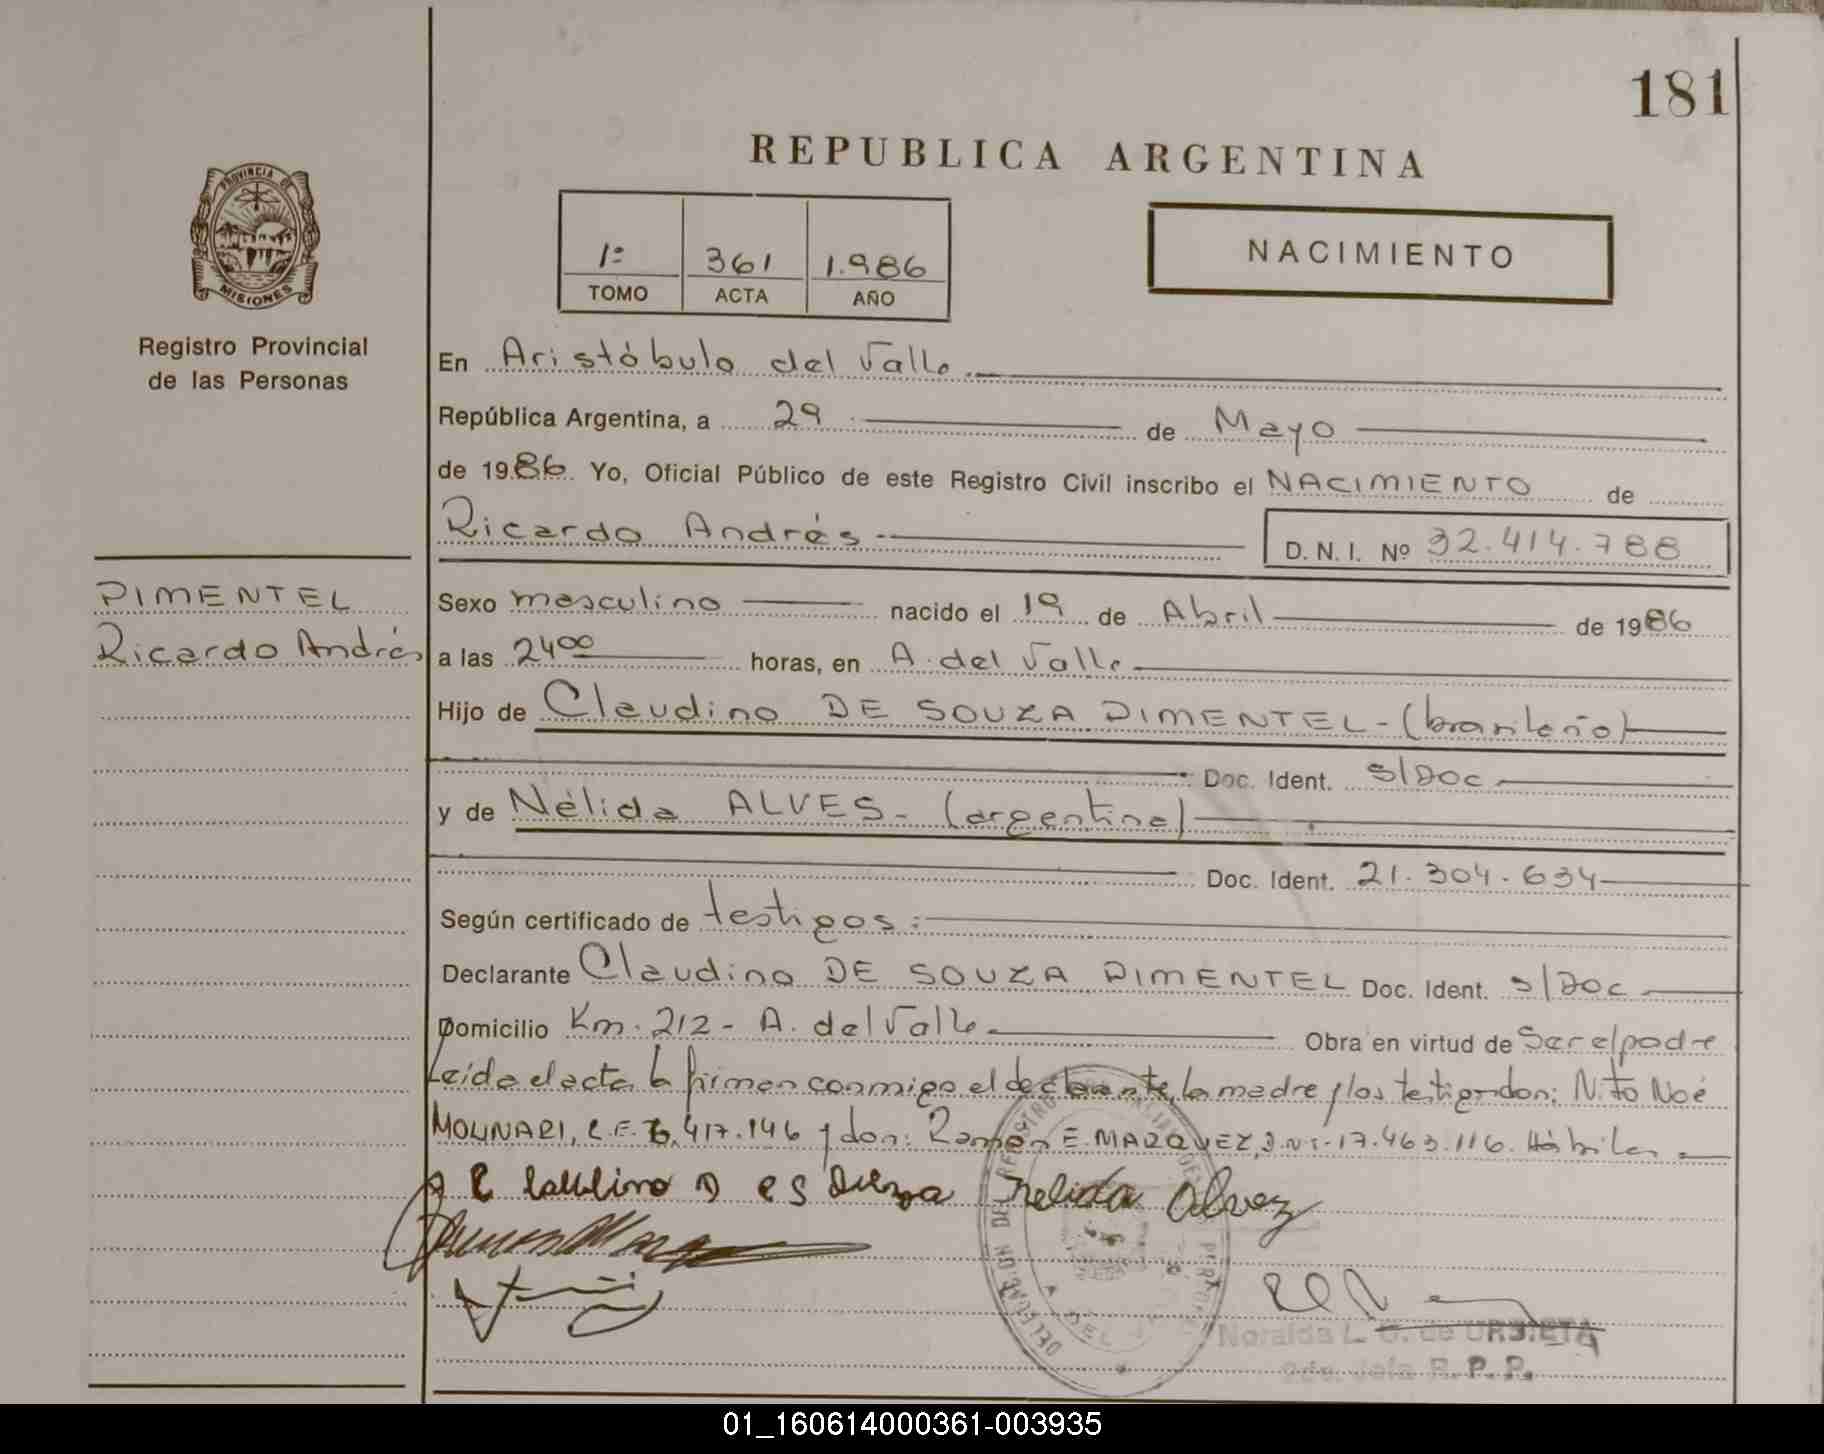 181
REPUBLICA ARGENTINA
PROVINCIA DE
MISIONES
Registro Provincial
de las Personas
1º 361 1.986
TOMO ACTA AÑO
NACIMIENTO
En Aristóbulo del Valle
República Argentina, a 29 de Mayo
de 1986 Yo, Oficial Público de este Registro Civil inscribo el NACIMIENTO de
Ricardo Andrés D.N.I. Nº 32.414.788
PIMENTEL
Ricardo Andrés
Sexo masculino nacido el 19 de Abril de 1986
a las 24oo horas, en A. del Valle
Hijo de Claudino DE SOUZA PIMENTEL - (brasileño)
Doc. Ident. s/Doc
y de Nélida ALVES - (argentina)
Doc. Ident. 21.304.634
Según certificado de testigos:
Declarante Claudino DE SOUZA PIMENTEL Doc. Ident. s/Doc
Domicilio Km. 212 - A. del Valle Obra en virtud de Ser el padre
Leída el acta la firman conmigo el declarante, la madre y los testigos don: Noé
MOLINARI, 417.146 y don: Ramón E. MARQUEZ, D.N.I. 17.463.116. Hábiles
Nelida Alvez
DEL REGISTRO
A. DEL
Noralda L. G. de URBIETA
R.P.P.
01_160614000361-003935